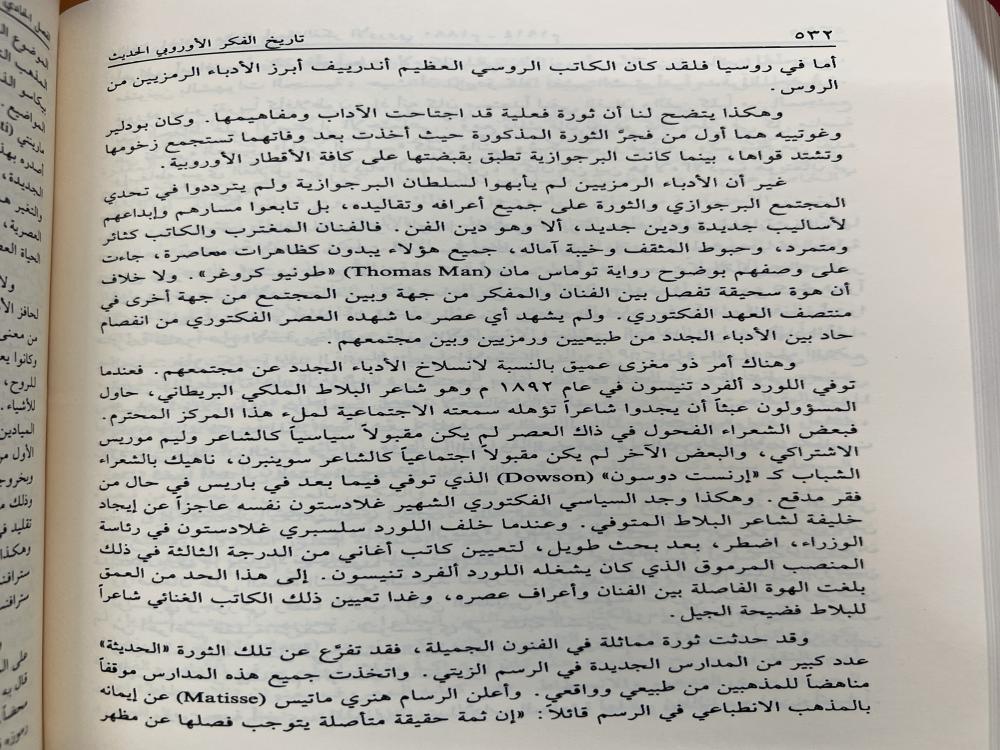 ٥٣٢
تاريخ الفكر الأوروبي الحديث
أما في روسيا فلقد كان الكاتب الروسي العظيم أندرييف أبرز الأدباء الرمزيين من
الروس .
وهكذا يتضح لنا أن ثورة فعلية قد اجتاحت الآداب ومفاهيمها. وكان بودلير
وغوتييه هما أول من فجرَّ الثورة المذكورة حيث أخذت بعد وفاتهما تستجمع زخومها
وتشتد قواها، بينما كانت البرجوازية تطبق بقبضتها على كافة الأقطار الأوروبية .
غير أن الأدباء الرمزيين لم يأبهوا لسلطان البرجوازية ولم يترددوا في تحدي
المجتمع البرجوازي والثورة على جميع أعرافه وتقاليده، بل تابعوا مسارهم وإبداعهم
لأساليب جديدة ودين جديد، ألا وهو دين الفن. فالفنان المغترب والكاتب كثائر
ومتمرد، وحبوط المثقف وخيبة آماله، جميع هؤلاء يبدون كظاهرات معاصرة، جاءت
على وصفهم بوضوح رواية توماس مان (Thomas Man) «طونيو كروغر». ولا خلاف
أن هوة سحيقة تفصل بين الفنان والمفكر من جهة وبين المجتمع من جهة أخرى في
منتصف العهد الفكتوري. ولم يشهد أي عصر ما شهده العصر الفكتوري من انفصام
حاد بين الأدباء الجدد من طبيعيين ورمزيين وبين مجتمعهم.
وهناك أمر ذو مغزى عميق بالنسبة لانسلاخ الأدباء الجدد عن مجتمعهم. فعندما
توفي اللورد ألفرد تنيسون في عام ١٨٩٢ م وهو شاعر البلاط الملكي البريطاني، حاول
المسؤولون عبثاً أن يجدوا شاعراً تؤهله سمعته الاجتماعية لملء هذا المركز المحترم.
فبعض الشعراء الفحول في ذاك العصر لم يكن مقبولاً سياسياً كالشاعر وليم موريس
الاشتراكي، والبعض الآخر لم يكن مقبولاً اجتماعياً كالشاعر سوينبرن، ناهيك بالشعراء
الشباب كـ «إرنست دوسون» (Dowson) الذي توفي فيما بعد في باريس في حال من
فقر مدقع. وهكذا وجد السياسي الفكتوري الشهير غلادستون نفسه عاجزاً عن إيجاد
خليفة لشاعر البلاط المتوفي. وعندما خلف اللورد سلسبري غلادستون في رئاسة
الوزراء، اضطر، بعد بحث طويل، لتعيين كاتب أغاني من الدرجة الثالثة في ذلك
المنصب المرموق الذي كان يشغله اللورد ألفرد تنيسون. إلى هذا الحد من العمق
بلغت الهوة الفاصلة بين الفنان وأعراف عصره، وغدا تعيين ذلك الكاتب الغنائي شاعراً
للبلاط فضيحة الجيل.
وقد حدثت ثورة مماثلة في الفنون الجميلة، فقد تفرَّع عن تلك الثورة «الحديثة»
عدد كبير من المدارس الجديدة في الرسم الزيتي. واتخذت جميع هذه المدارس موقفاً
مناهضاً للمذهبين من طبيعي وواقعي. وأعلن الرسام هنري ماتيس (Matisse) عن إيمانه
بالمذهب الانطباعي في الرسم قائلاً: «إن ثمة حقيقة متأصلة يتوجب فصلها عن مظهر